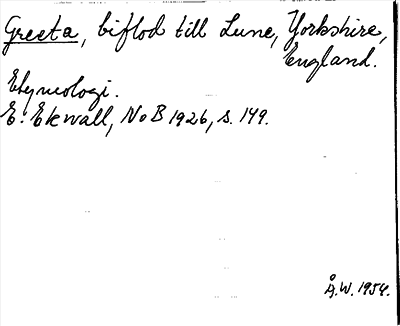 Greeta, biflod till Lune, Yorkshire,
England.
Etymologi.
E. Ekwall, NoB 1926, s. 149.
Å.W. 1954.